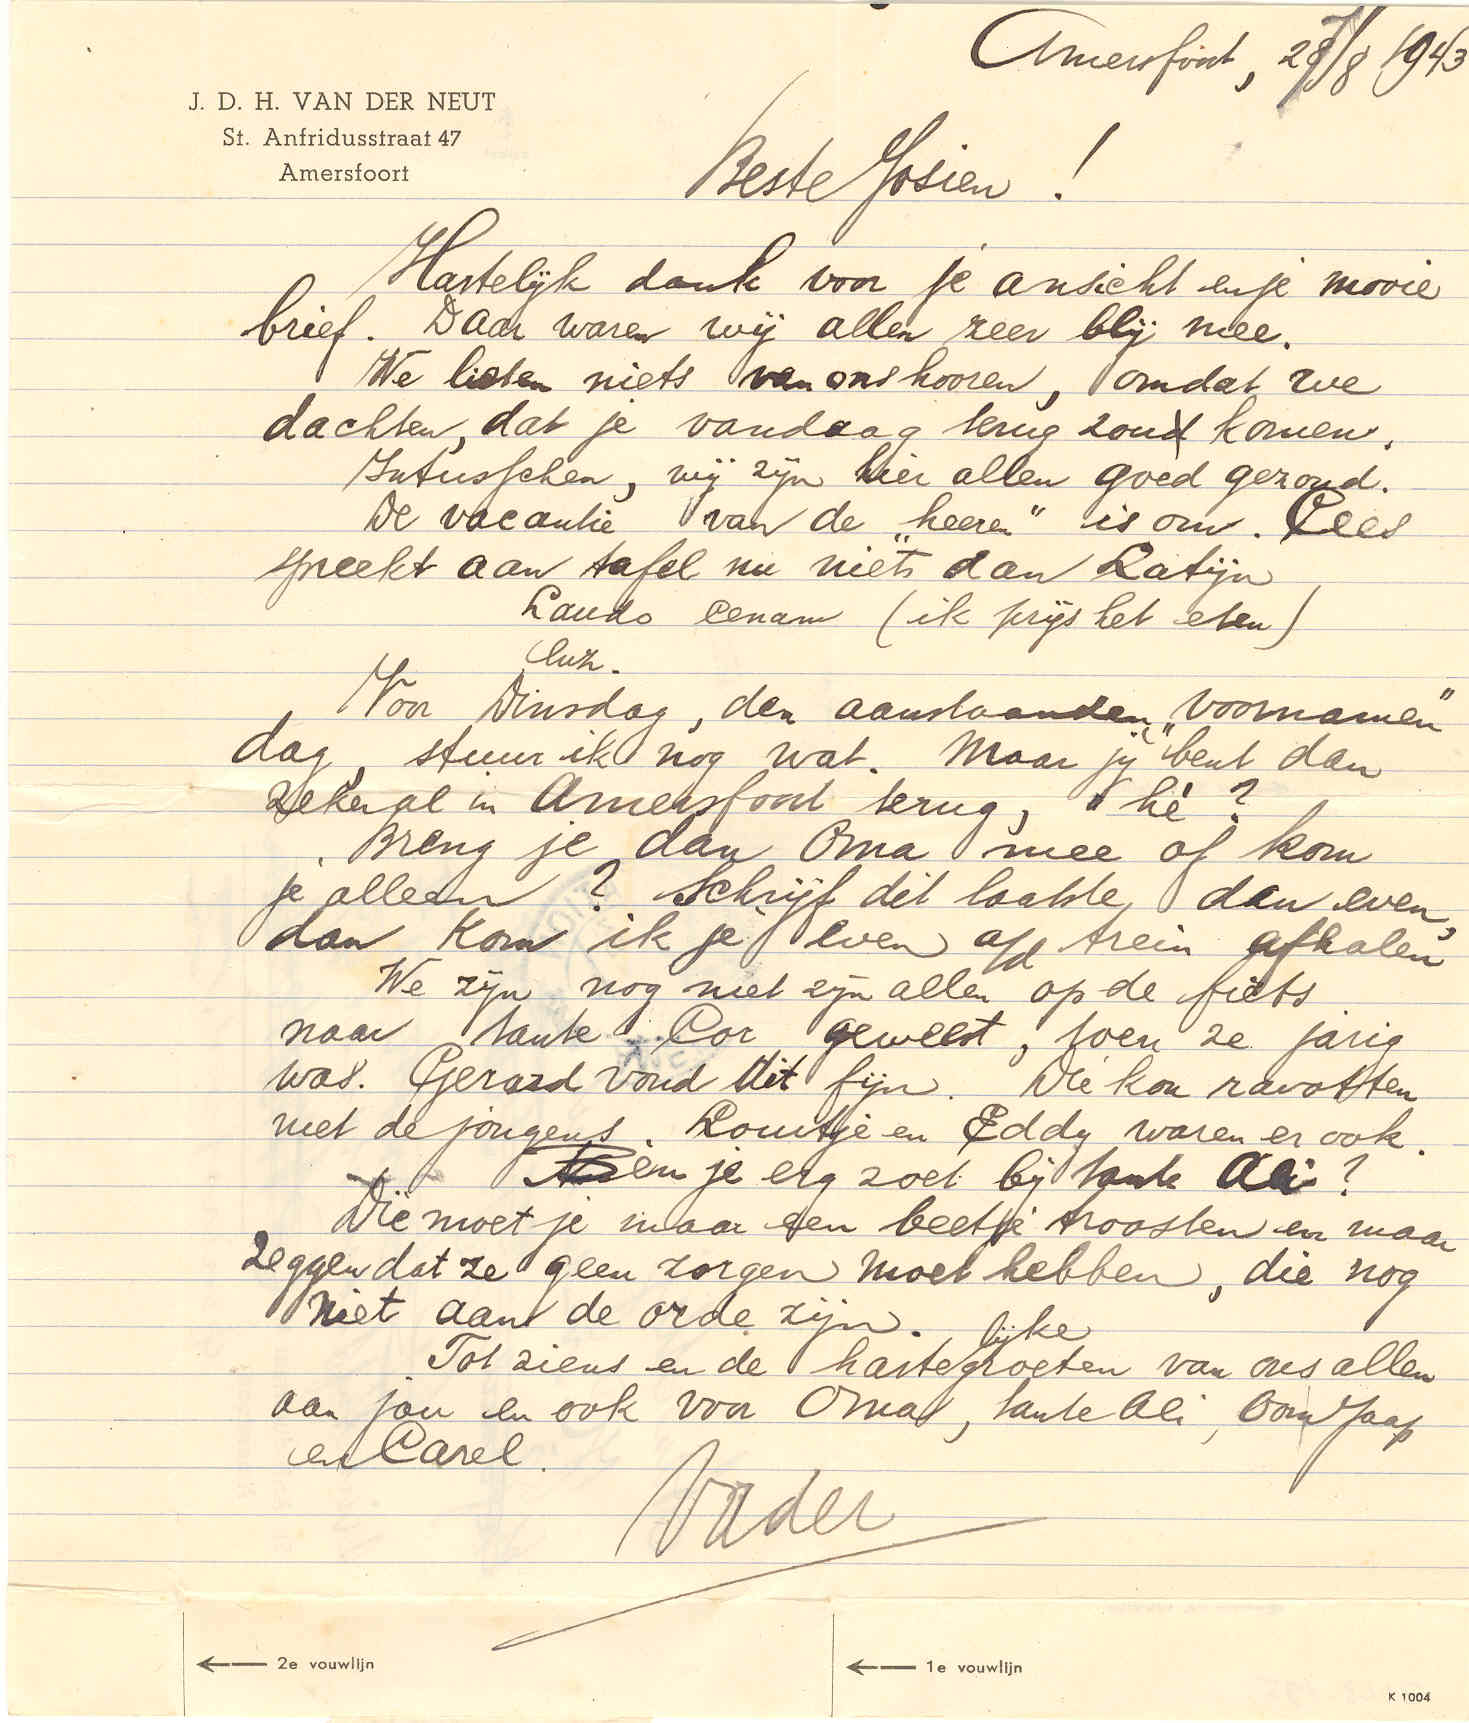 Amersfoort, 28/8 1943
J. D. H. VAN DER NEUT
St. Anfridusstraat 47
Amersfoort
Beste Josien !
Hartelijk dank voor je ansicht en je mooie
brief. Daar waren wij allen zeer blij mee.
We lieten niets van ons hooren, omdat we
dachten, dat je vandaag terug zou komen.
Intusschen, wij zijn hier allen goed gezond.
De vacantie van de „heeren" is om. Cees
spreekt aan tafel nu niets dan Latijn
Laudo cenam (ik prijs het eten)
enz.
Voor Dinsdag, den aanstaanden „voornamen"
dag, stuur ik nog wat. Maar jij bent dan
zeker al in Amersfoort terug, hè ?
Breng je dan Oma mee of kom
je alleen ? Schrijf dit laatste dan even,
dan kom ik je even a/d trein afhalen
We zijn nog met zijn allen op de fiets
naar tante Cor geweest, toen ze jarig
was. Gerard vond dit fijn. Die kon ravotten
met de jongens. Louwtje en Eddy waren er ook.
Ben je erg zoet bij tante Ali ?
Die moet je maar een beetje troosten en maar
zeggen dat ze geen zorgen moet hebben, die nog
niet aan de orde zijn.
Tot ziens en de hartelijke groeten van ons allen
aan jou en ook voor Oma, tante Ali, Oom Jaap
en Carel.
Vader
← 2e vouwlijn
← 1e vouwlijn
K 1004